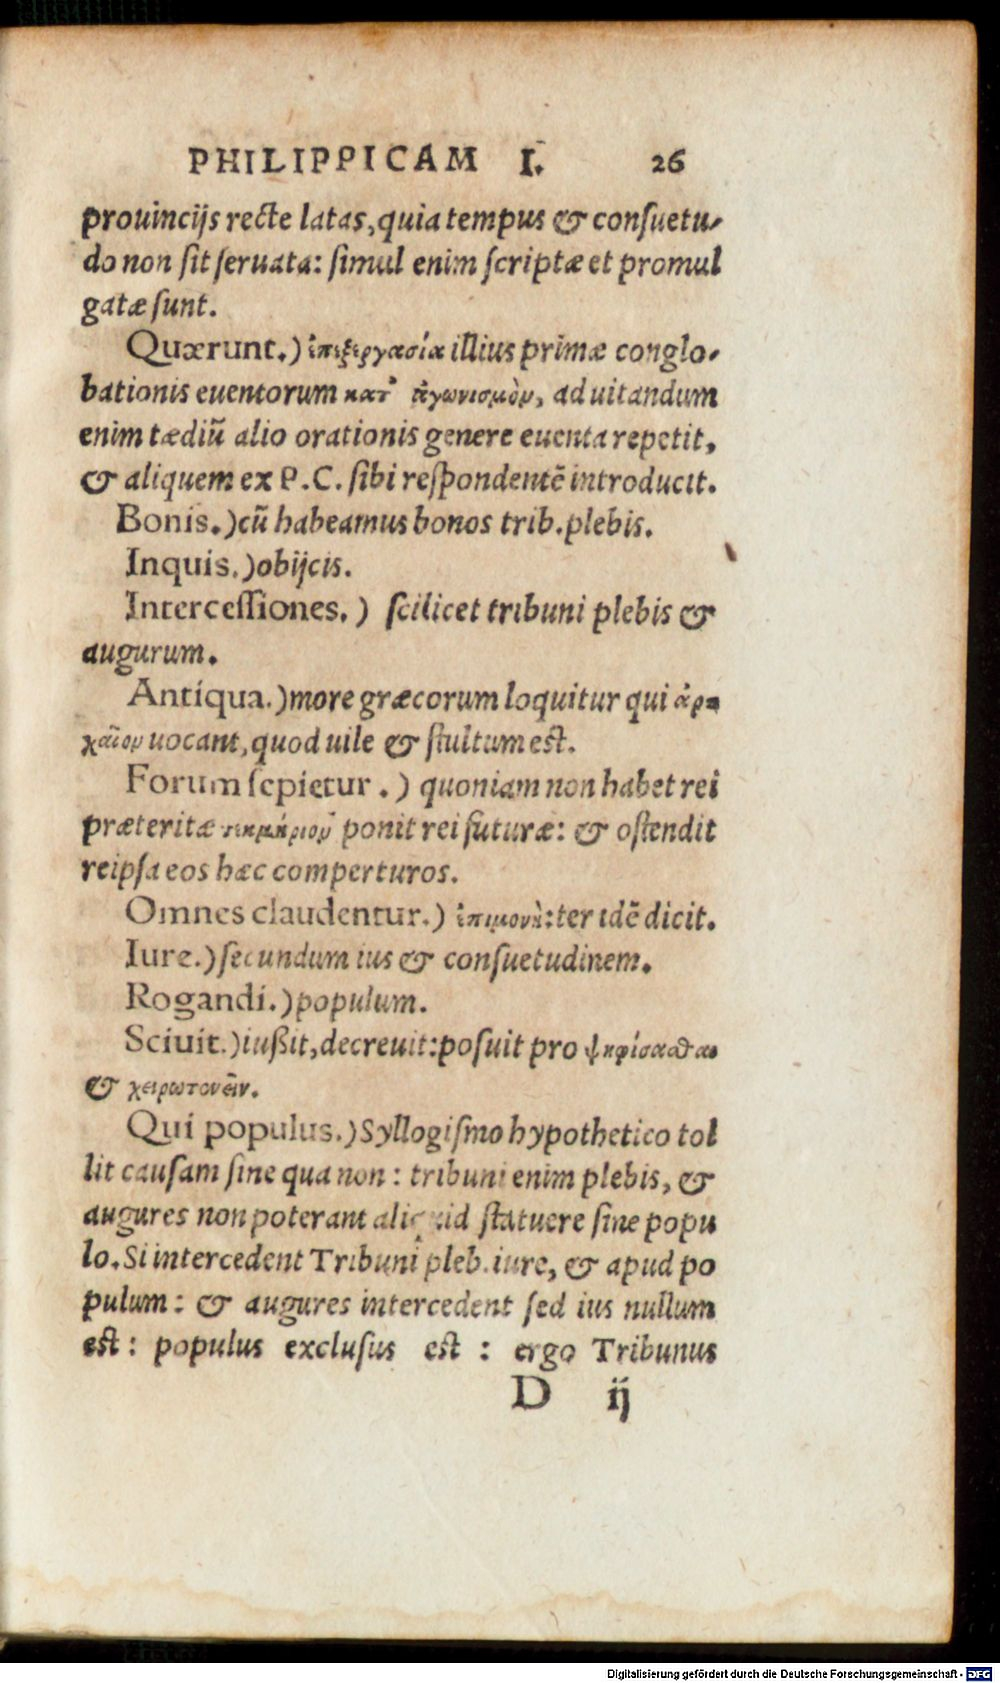 PHILIPPICAM I. 26
prouincijs recte latas, quia tempus & consuetu-
do non sit seruata: simul enim scriptæ et promul
gatæ sunt.
Quærunt.) ἐπεξεργασία illius primæ conglo-
bationis euentorum κατ' ἀγωνισμὸν, ad uitandum
enim tædiũ alio orationis genere euenta repetit,
& aliquem ex P.C. sibi respondentẽ introducit.
Bonis.) cũ habeamus bonos trib. plebis.
Inquis.) obijcis.
Intercessiones.) scilicet tribuni plebis &
augurum.
Antiqua.) more græcorum loquitur qui ἀρ-
χαῖον uocant, quod uile & stultum est.
Forum sepietur.) quoniam non habet rei
præteritæ τεκμήριον ponit rei futuræ: & ostendit
reipsa eos hæc comperturos.
Omnes claudentur.) ἐπιμονὴ: ter idẽ dicit.
Iure.) secundum ius & consuetudinem.
Rogandi.) populum.
Sciuit.) iußit, decreuit: posuit pro ψηφίσασθαι
& χειροτονεῖν.
Qui populus.) Syllogismo hypothetico tol
lit causam sine qua non: tribuni enim plebis, &
augures non poterant aliquid statuere sine popu
lo. Si intercedent Tribuni pleb. iure, & apud po
pulum: & augures intercedent sed ius nullum
est: populus exclusus est: ergo Tribunus
D ij
Digitalisierung gefördert durch die Deutsche Forschungsgemeinschaft - DFG